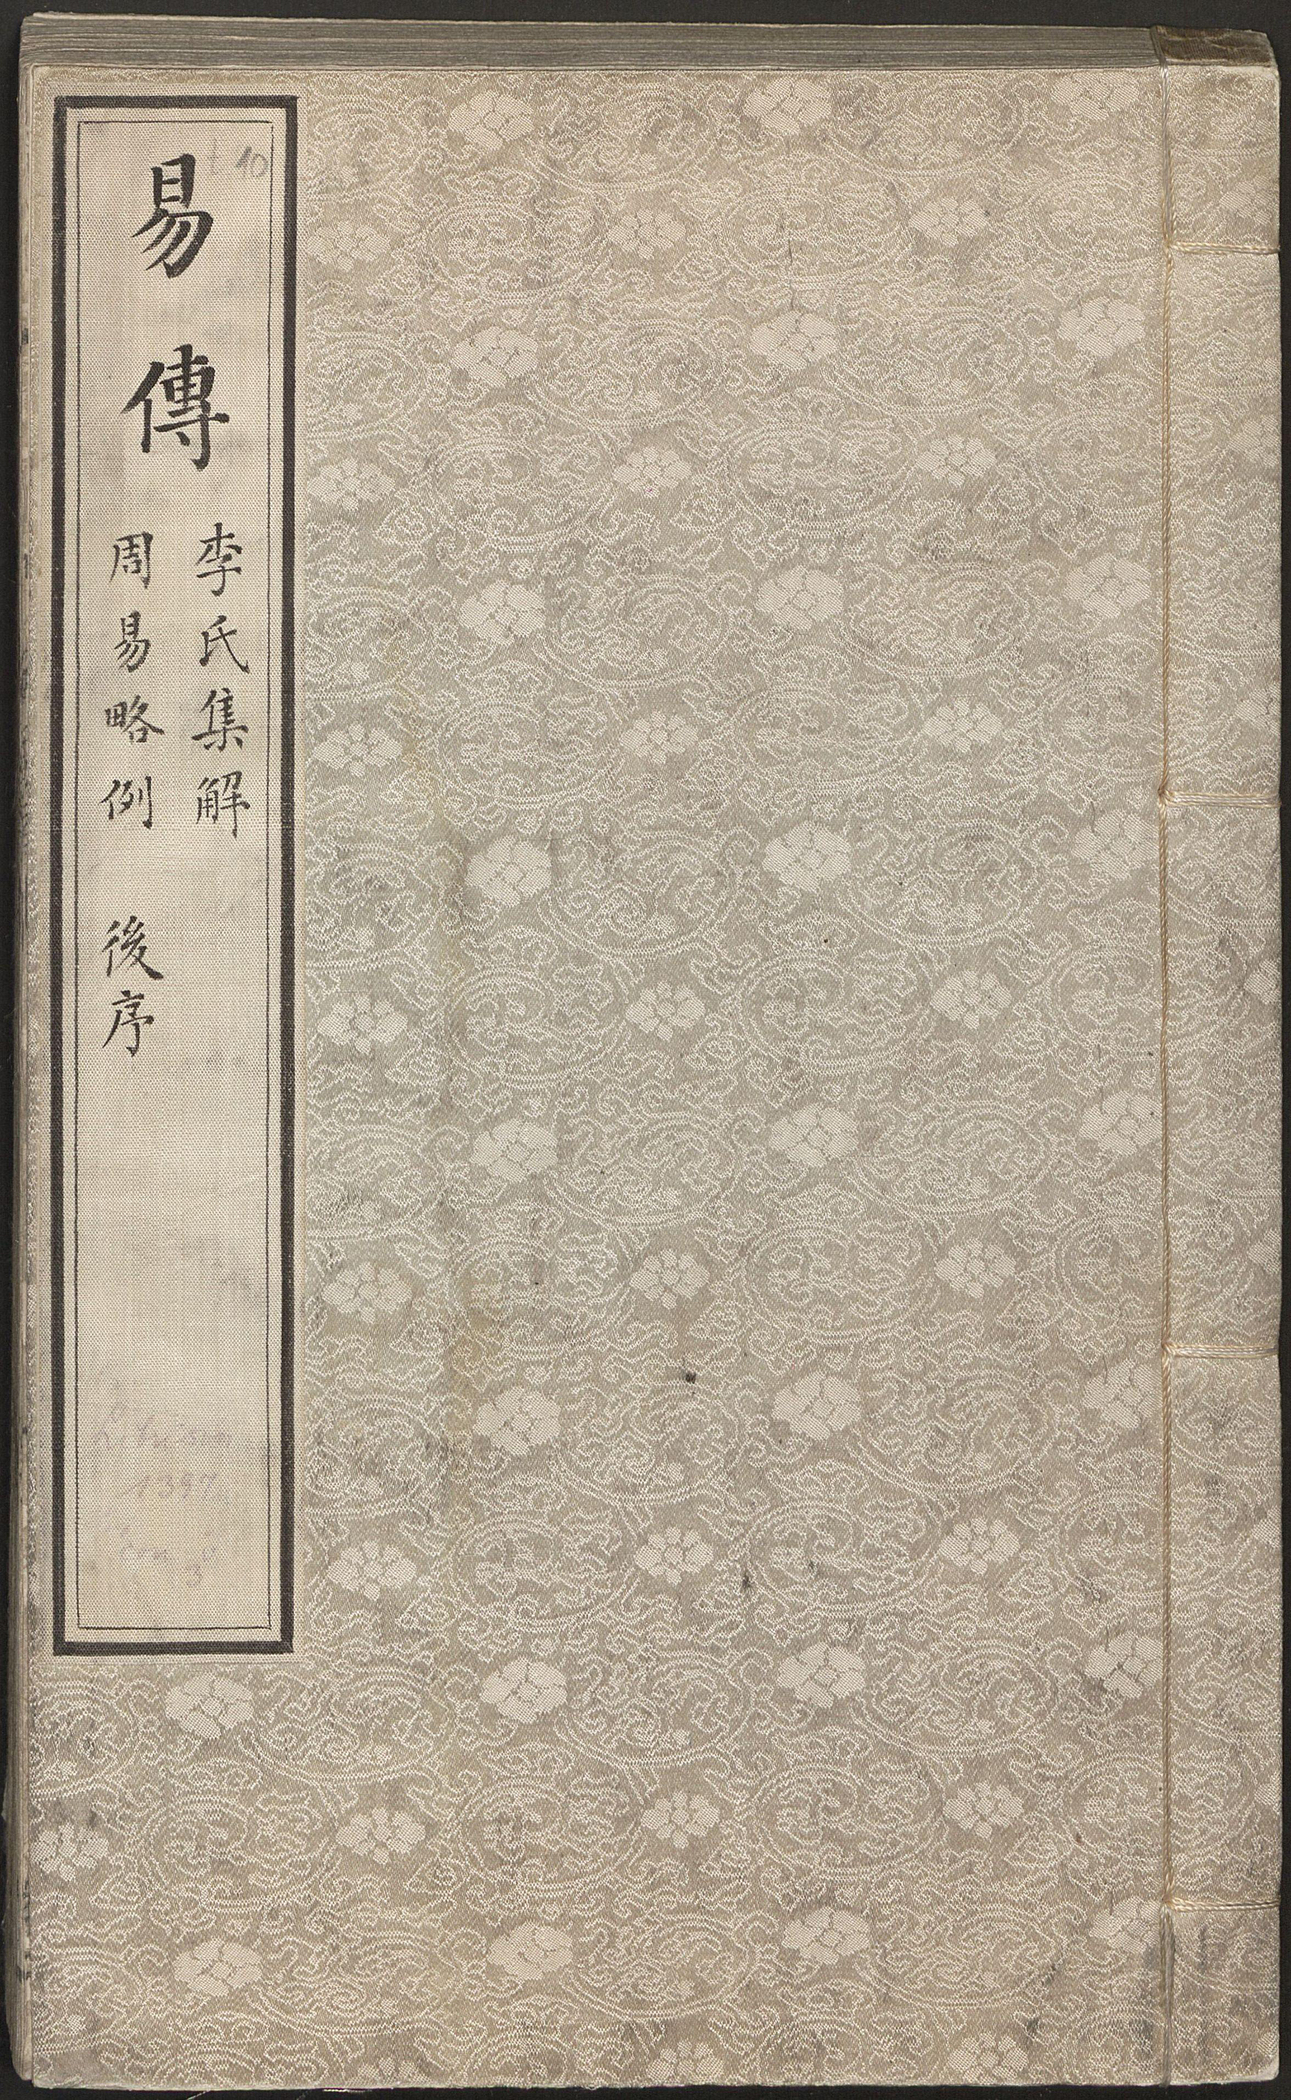 易傳
李氏集解
周易略例 後序
10
1397
3